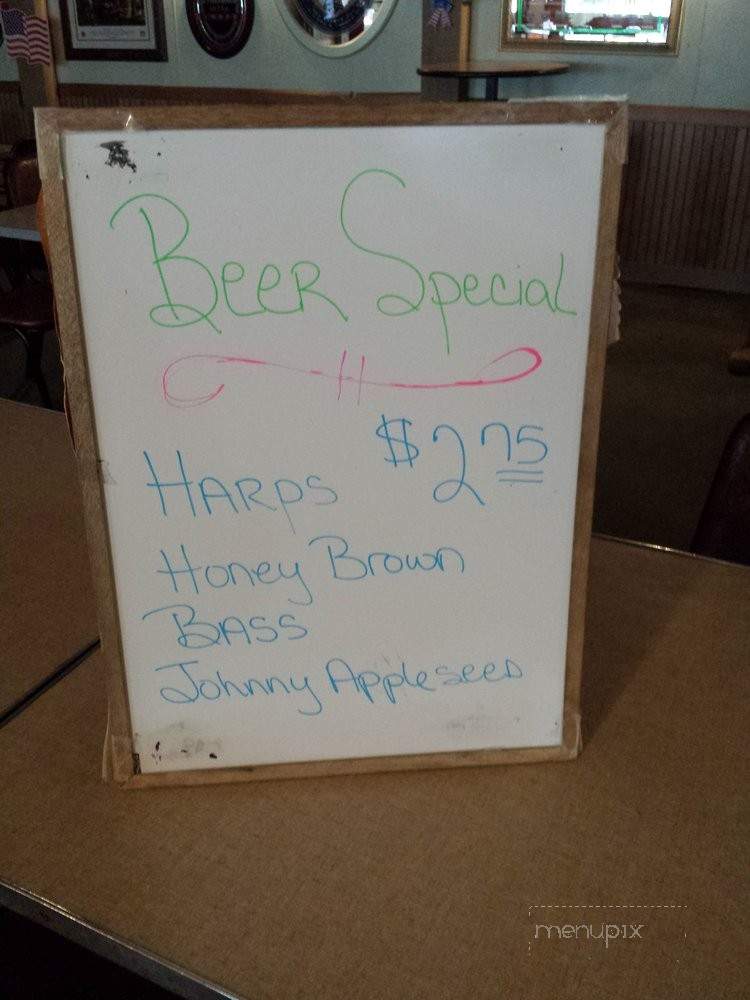 Beer Special
$2 75
Harps
Honey Brown
Bass
Johnny Appleseed
menupix